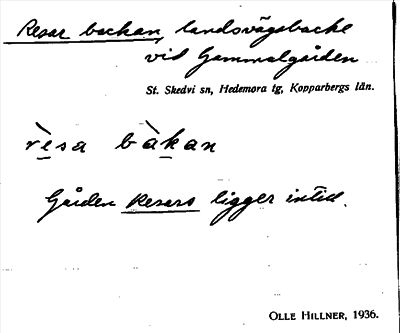 Resar backan, landsvägsbacke
vid Gammalgården
St. Skedvi sn, Hedemora tg, Kopparbergs län.
rèsa bàkan
Gården Resars ligger intill.
OLLE HILLNER, 1936.